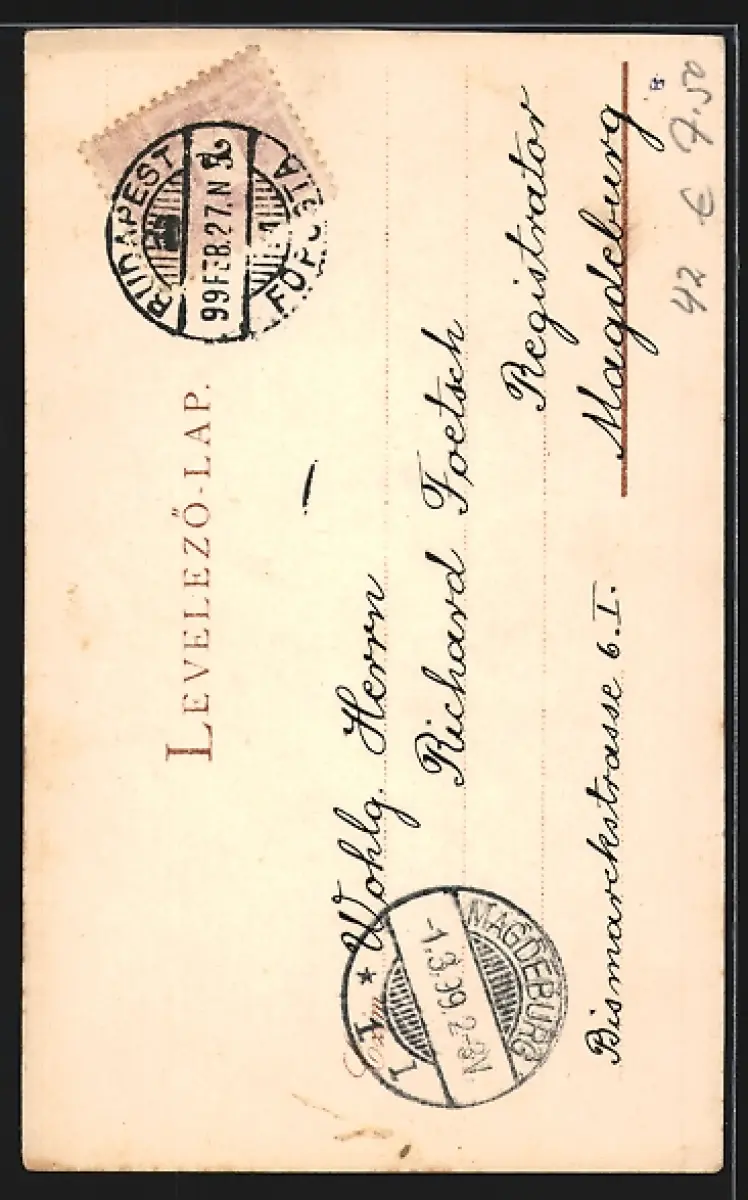 LEVELEZŐ-LAP.
BUDAPEST
99 FEB. 27. N
FŐPOSTA
Wohlg. Herrn
Richard Foetsch
Registrator
Magdeburg
Bismarckstrasse 6. I.
MAGDEBURG
1.3.99.
* 1 1
42 € 7.50